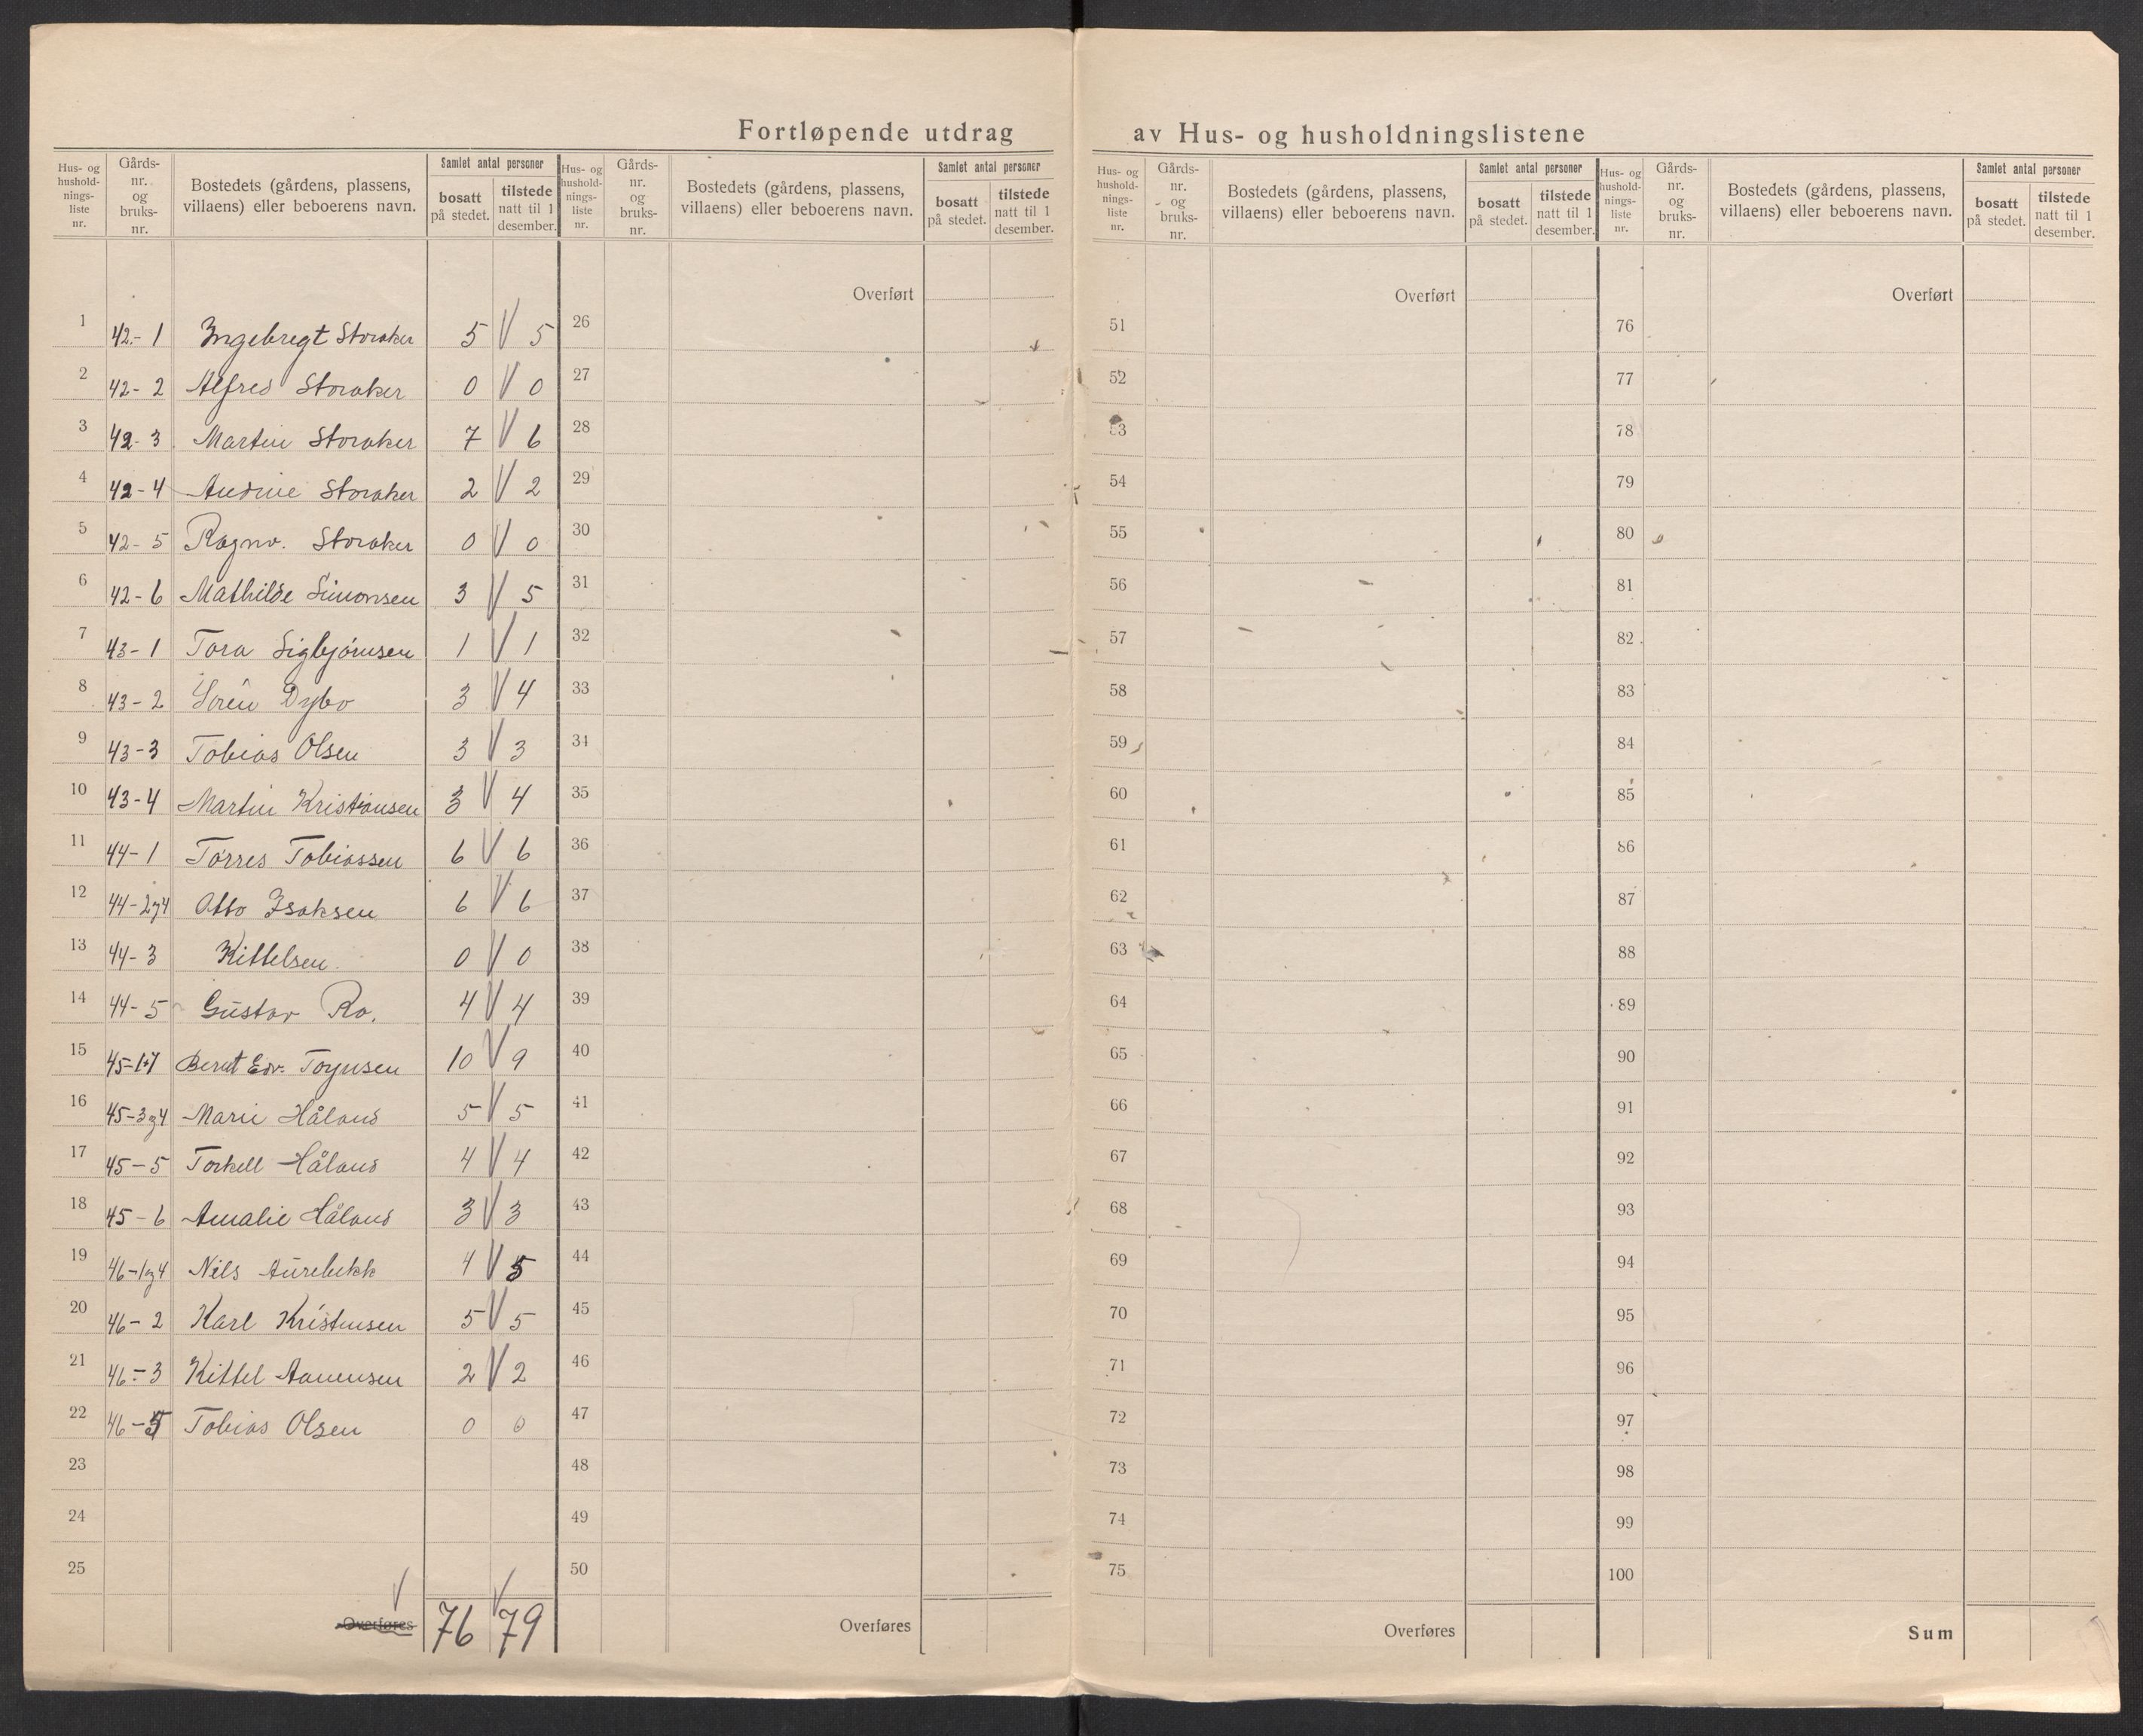 Fortløpende utdrag av Hus- og husholdningslistene
Hus- og hushold-nings-liste nr. | Gårds-nr. og bruks-nr. | Bostedets (gårdens, plassens, villaens) eller beboerens navn. | Samlet antal personer | bosatt på stedet. | tilstede natt til 1 desember.
Hus- og hushold-nings-liste nr. | Gårds-nr. og bruks-nr. | Bostedets (gårdens, plassens, villaens) eller beboerens navn. | Samlet antal personer | bosatt på stedet. | tilstede natt til 1 desember.
Hus- og hushold-nings-liste nr. | Gårds-nr. og bruks-nr. | Bostedets (gårdens, plassens, villaens) eller beboerens navn. | Samlet antal personer | bosatt på stedet. | tilstede natt til 1 desember.
Hus- og hushold-nings-liste nr. | Gårds-nr. og bruks-nr. | Bostedets (gårdens, plassens, villaens) eller beboerens navn. | Samlet antal personer | bosatt på stedet. | tilstede natt til 1 desember.
Overført Overført Overført
1 42-1 Ingebregt Storaker 5 5 26 51 76
2 42-2 Alfred Storaker 0 0 27 52 77
3 42-3 Martin Storaker 7 6 28 53 78
4 42-4 Andrine Storaker 2 2 29 54 79
5 42-5 Ragnv. Storaker 0 0 30 55 80
6 42-6 Mathilde Simonsen 3 5 31 56 81
7 43-1 Tora Sigbjørnsen 1 1 32 57 82
8 43-2 Søren Dybo 3 4 33 58 83
9 43-3 Tobias Olsen 3 3 34 59 84
10 43-4 Martin Kristiansen 3 4 35 60 85
11 44-1 Tørres Tobiassen 6 6 36 61 86
12 44-2og4 Otto Isaksen 6 6 37 62 87
13 44-3 Kittelsen 0 0 38 63 88
14 44-5 Gustav Ro. 4 4 39 64 89
15 45-1+7 Berent Edv. 10 9 40 65 90
16 45-3og4 Marie Håland 5 5 41 66 91
17 45-5 Torkell Håland 4 4 42 67 92
18 45-6 Amalie Håland 3 3 43 68 93
19 46-1og4 Nils Aurebekk 4 5 44 69 94
20 46-2 Karl Kristensen 5 5 45 70 95
21 46-3 Kittel Aanensen 2 2 46 71 96
22 46-5 Tobias Olsen 0 0 47 72 97
23 48 73 98
24 49 74 99
25 50 75 100
Overføres 76 79 Overføres Overføres Sum